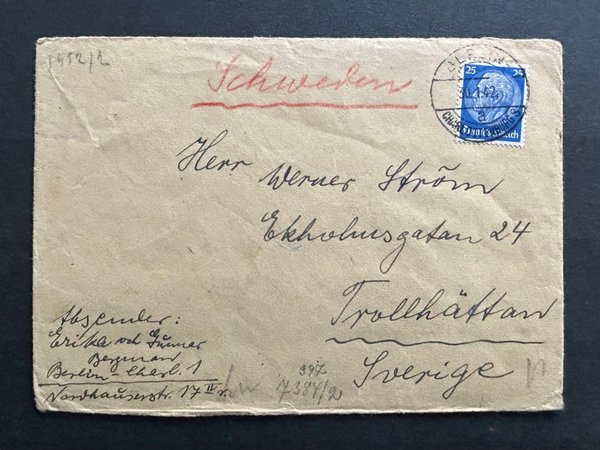 Schweden
25 25
Herr Werner Ström
Ekholmsgatan 24
Trollhättan
Sverige
Absender:
Erika och Gunnar
Bergman
Berlin-Charl. 1
Nordhauserstr. 17 IV r.
7384/2